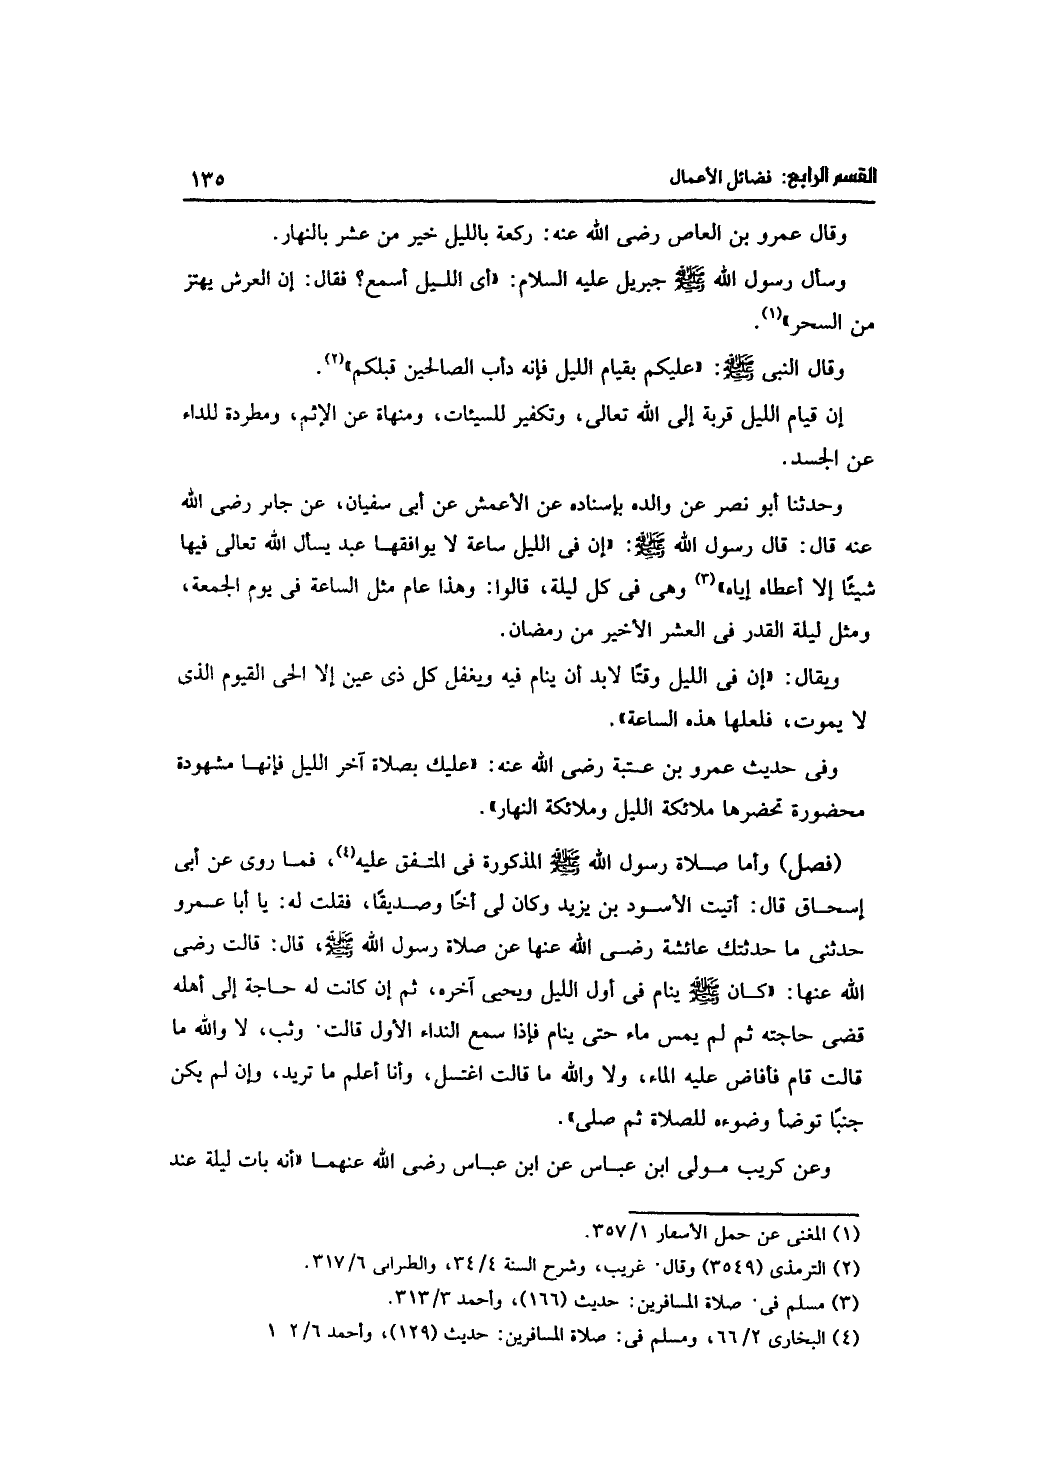 القسم الرابع: فضائل الأعمال ١٣٥
وقال عمرو بن العاص رضى الله عنه: ركعة بالليل خير من عشر بالنهار.
وسأل رسول الله ﷺ جبريل عليه السلام: «أى الليل أسمع؟ فقال: إن العرش يهتز
من السحر»(١).
وقال النبى ﷺ: «عليكم بقيام الليل فإنه دأب الصالحين قبلكم»(٢).
إن قيام الليل قربة إلى الله تعالى، وتكفير للسيئات، ومنهاة عن الإثم، ومطردة للداء
عن الجسد.
وحدثنا أبو نصر عن والده بإسناده عن الأعمش عن أبى سفيان، عن جابر رضى الله
عنه قال: قال رسول الله ﷺ: «إن فى الليل ساعة لا يوافقها عبد يسأل الله تعالى فيها
شيئًا إلا أعطاه إياه»(٣) وهى فى كل ليلة، قالوا: وهذا عام مثل الساعة فى يوم الجمعة،
ومثل ليلة القدر فى العشر الأخير من رمضان.
ويقال: «إن فى الليل وقتًا لابد أن ينام فيه ويغفل كل ذى عين إلا الحى القيوم الذى
لا يموت، فلعلها هذه الساعة».
وفى حديث عمرو بن عتبة رضى الله عنه: «عليك بصلاة آخر الليل فإنها مشهودة
محضورة تحضرها ملائكة الليل وملائكة النهار».
(فصل) وأما صلاة رسول الله ﷺ المذكورة فى المتفق عليه(٤)، فما روى عن أبى
إسحاق قال: أتيت الأسود بن يزيد وكان لى أخًا وصديقًا، فقلت له: يا أبا عمرو
حدثنى ما حدثتك عائشة رضى الله عنها عن صلاة رسول الله ﷺ، قال: قالت رضى
الله عنها: «كان ﷺ ينام فى أول الليل ويحيى آخره، ثم إن كانت له حاجة إلى أهله
قضى حاجته ثم لم يمس ماء حتى ينام فإذا سمع النداء الأول قالت· وثب، لا والله ما
قالت قام فأفاض عليه الماء، ولا والله ما قالت اغتسل، وأنا أعلم ما تريد، وإن لم يكن
جنبًا توضأ وضوءه للصلاة ثم صلى».
وعن كريب مولى ابن عباس عن ابن عباس رضى الله عنهما «أنه بات ليلة عند
(١) المغنى عن حمل الأسفار ٣٥٧/١.
(٢) الترمذى (٣٥٤٩) وقال· غريب، وشرح السنة ٣٤/٤، والطبرانى ٣١٧/٦.
(٣) مسلم فى· صلاة المسافرين: حديث (١٦٦)، وأحمد ٣١٣/٣.
(٤) البخارى ٦٦/٢، ومسلم فى: صلاة المسافرين: حديث (١٢٩)، وأحمد ٢/٦ ١